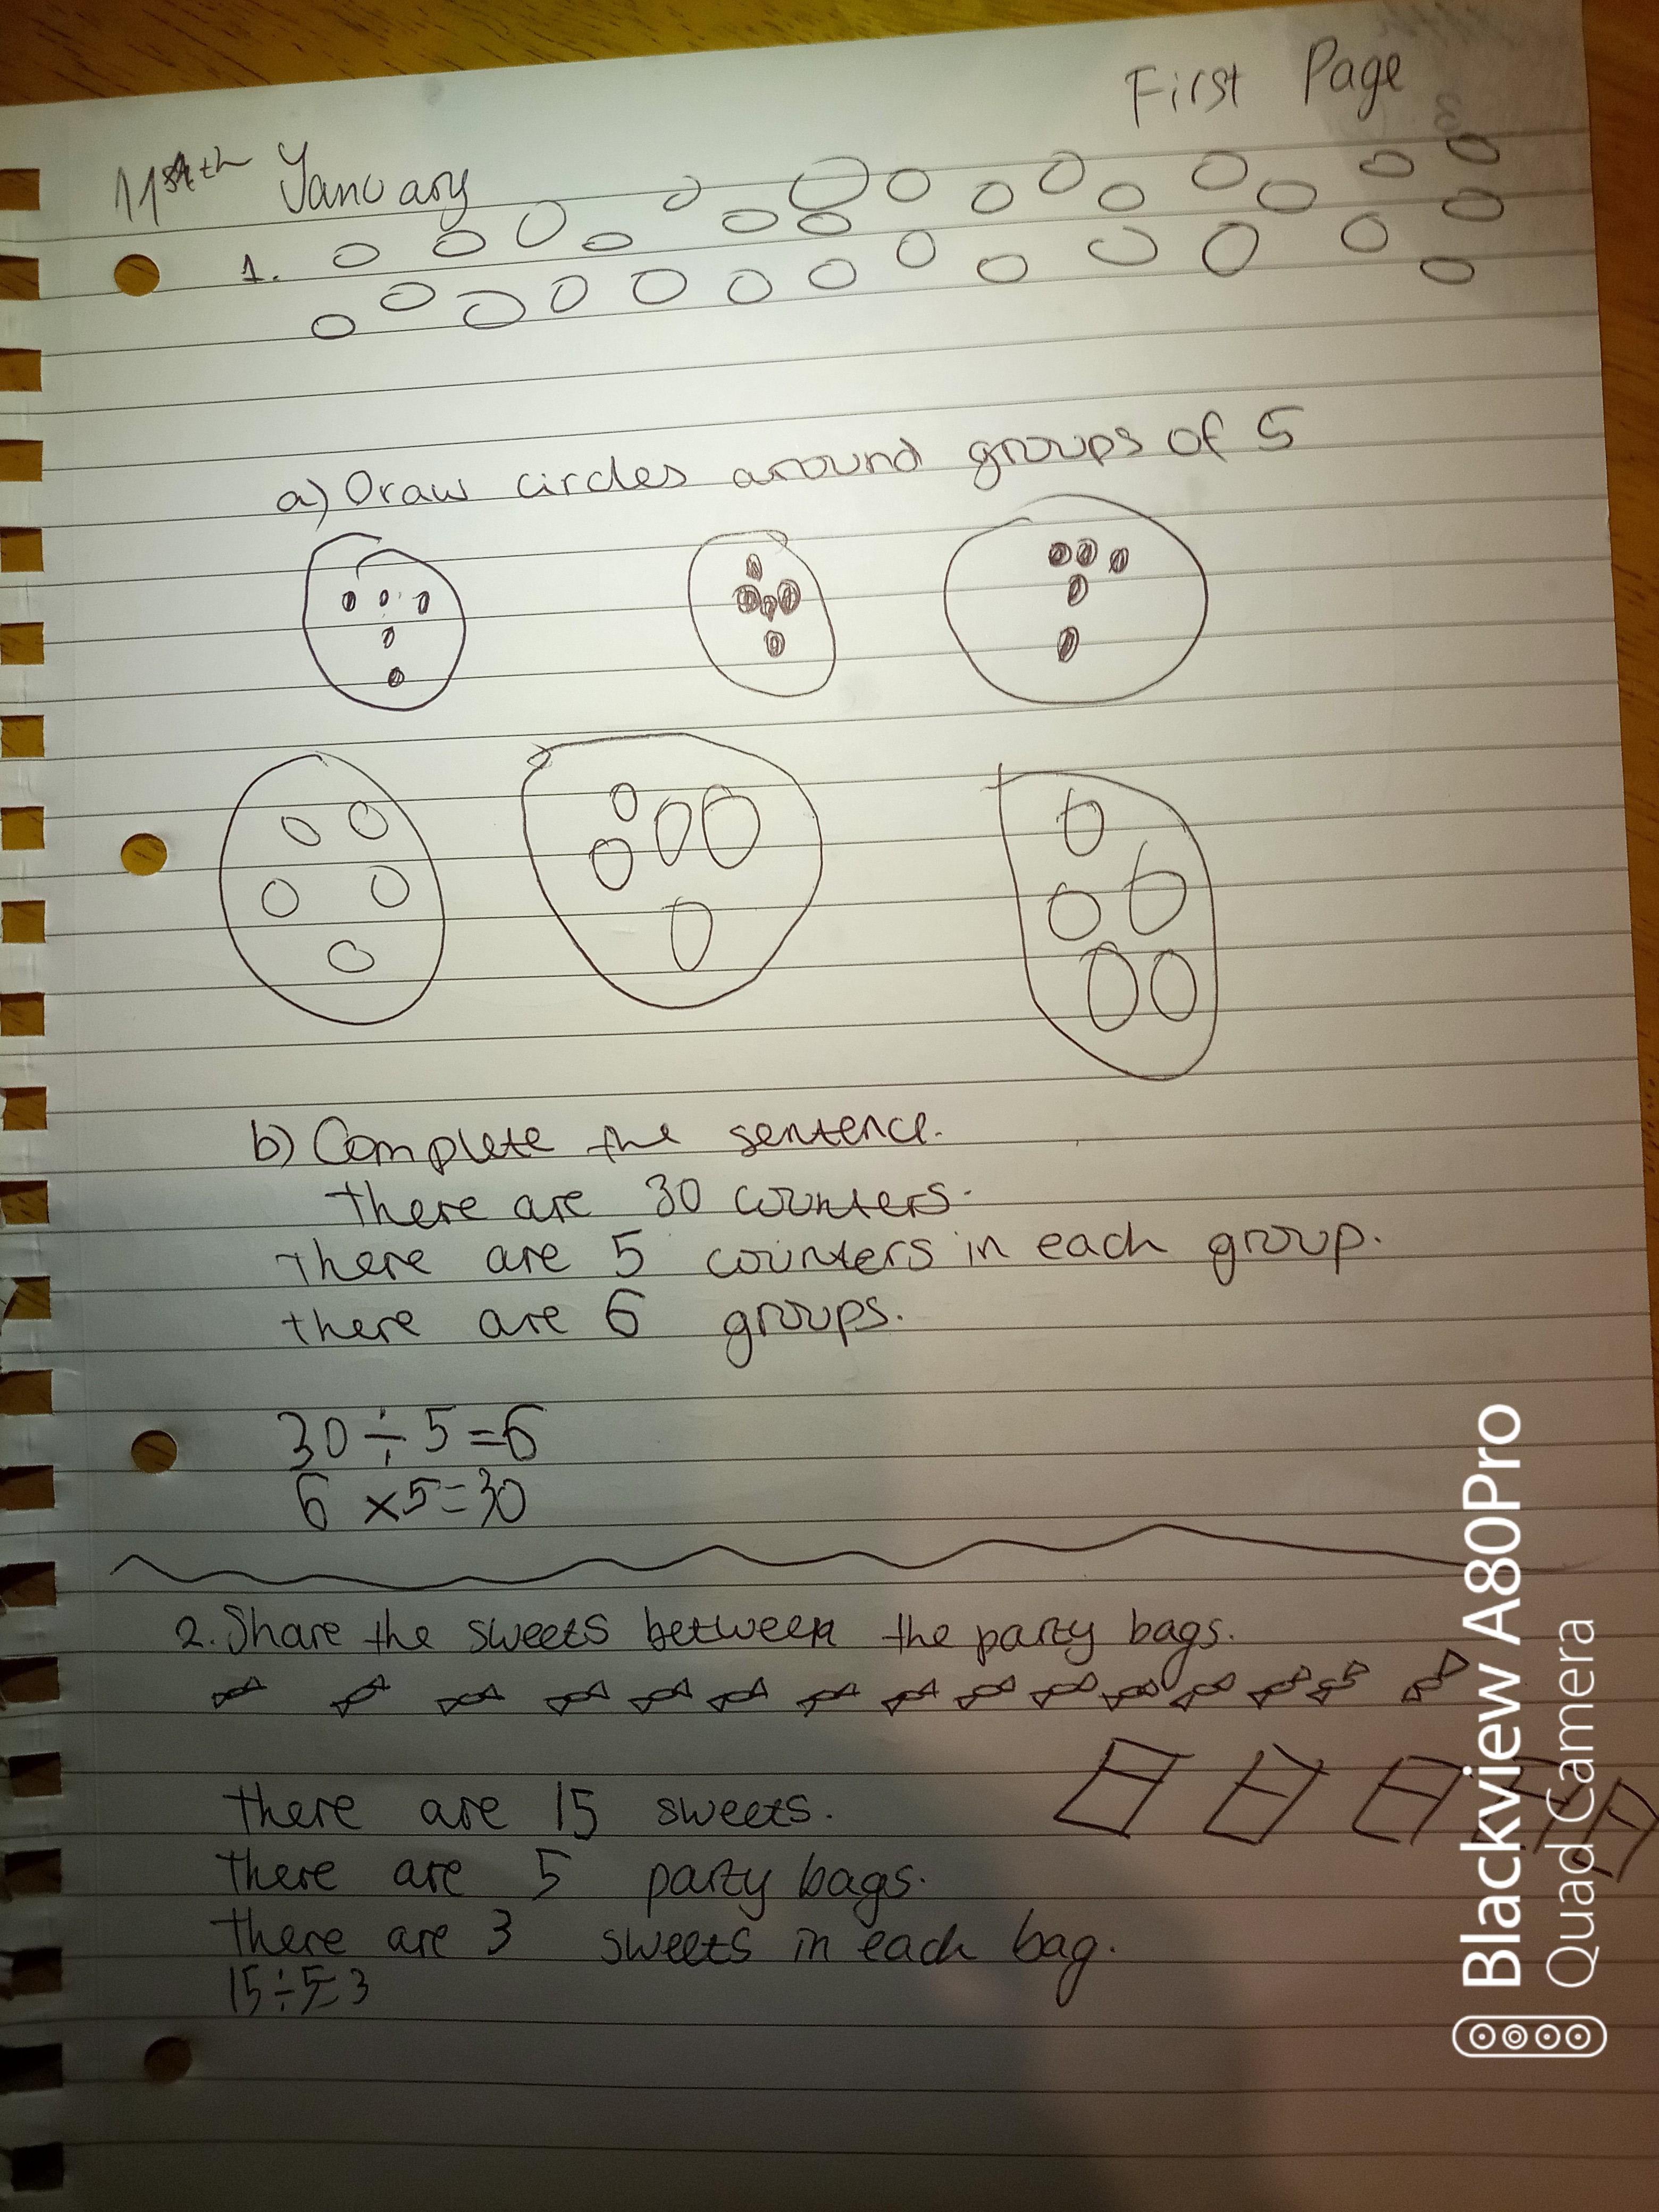 First Page
11th January
1.
a) Draw circles around groups of 5
b) Complete the sentence.
There are 30 counters.
There are 5 counters in each group.
there are 6 groups.
30÷5=6
6 x5=30
2. Share the sweets between the party bags.
there are 15 sweets.
there are 5 party bags.
there are 3 sweets in each bag.
15÷5=3
Blackview A80Pro
Quad Camera